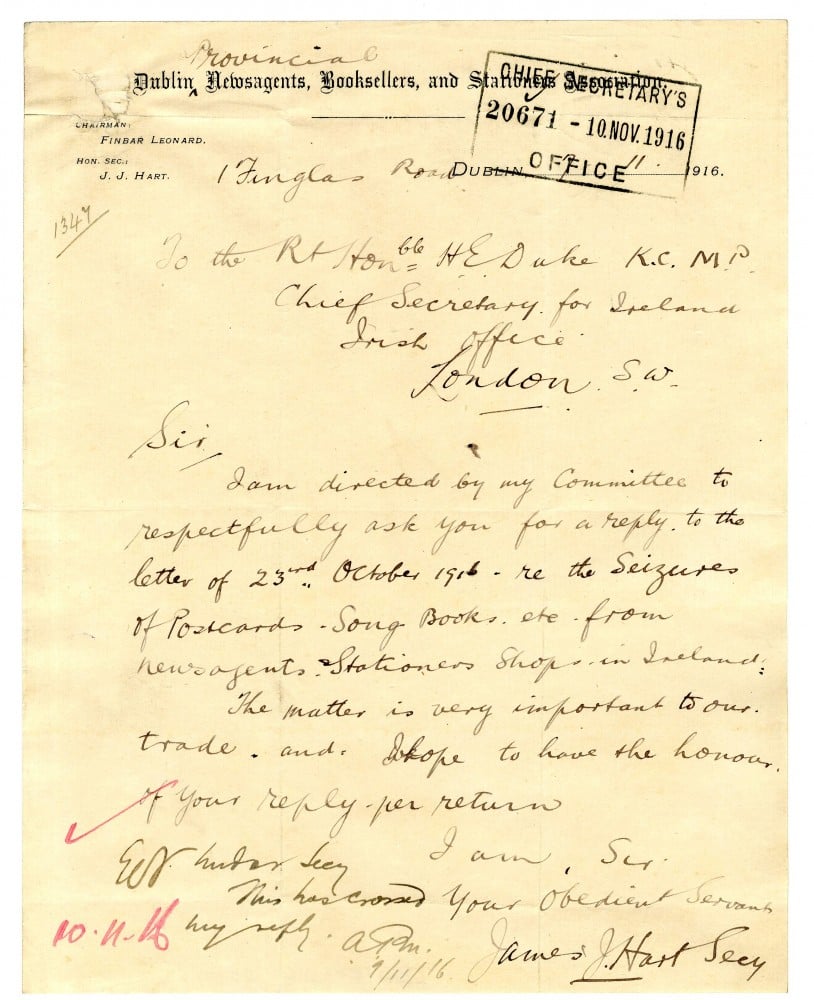 Provincial
Dublin ‸ Newsagents, Booksellers, and Stationers Association.
CHIEF SECRETARY'S
20671 - 10. NOV. 1916
OFFICE
CHAIRMAN:
FINBAR LEONARD.
HON. SEC.:
J. J. HART.
1 Finglas Road DUBLIN, 7 11. 1916.
1347
To the Rt Honble H.E. Duke K.C. M.P.
Chief Secretary for Ireland
Irish Office
London S.W.
Sir,
I am directed by my Committee to
respectfully ask you for a reply to the
letter of 23rd October 1916 - re the Seizures
of Postcards - Song Books. etc. from
newsagents & Stationers Shops in Ireland:
The matter is very important to our
trade. and. I hope to have the honour
of your reply per return
I am, Sir.
Your Obedient Servant
James J. Hart Secy
Under Secy
This has crossed
my reply.
9/11/16
10.11.16